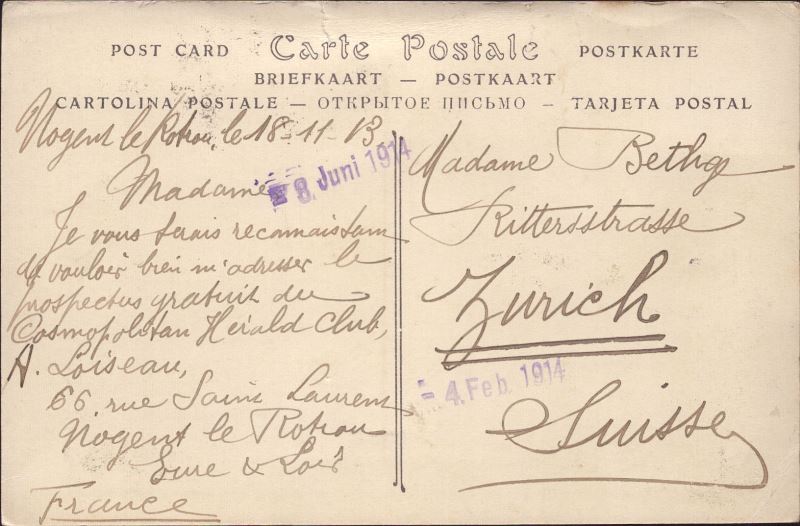 POST CARD Carte Postale POSTKARTE
BRIEFKAART — POSTKAART
CARTOLINA POSTALE — ОТКРЫТОЕ ПИСЬМО — TARJETA POSTAL
Nogent le Rotrou, le 18-11-13
Madame
Je vous serais reconnaissant
de vouloir bien m'adresser le
prospectus gratuit du
Cosmopolitan Herald Club,
A. Loiseau,
66, rue Saint Laurent
Nogent le Rotrou
Eure & Loir
France
8. Juni 1914
Madame Bethge
Rittersstrasse
Zurich
- 4. Feb. 1914
Suisse